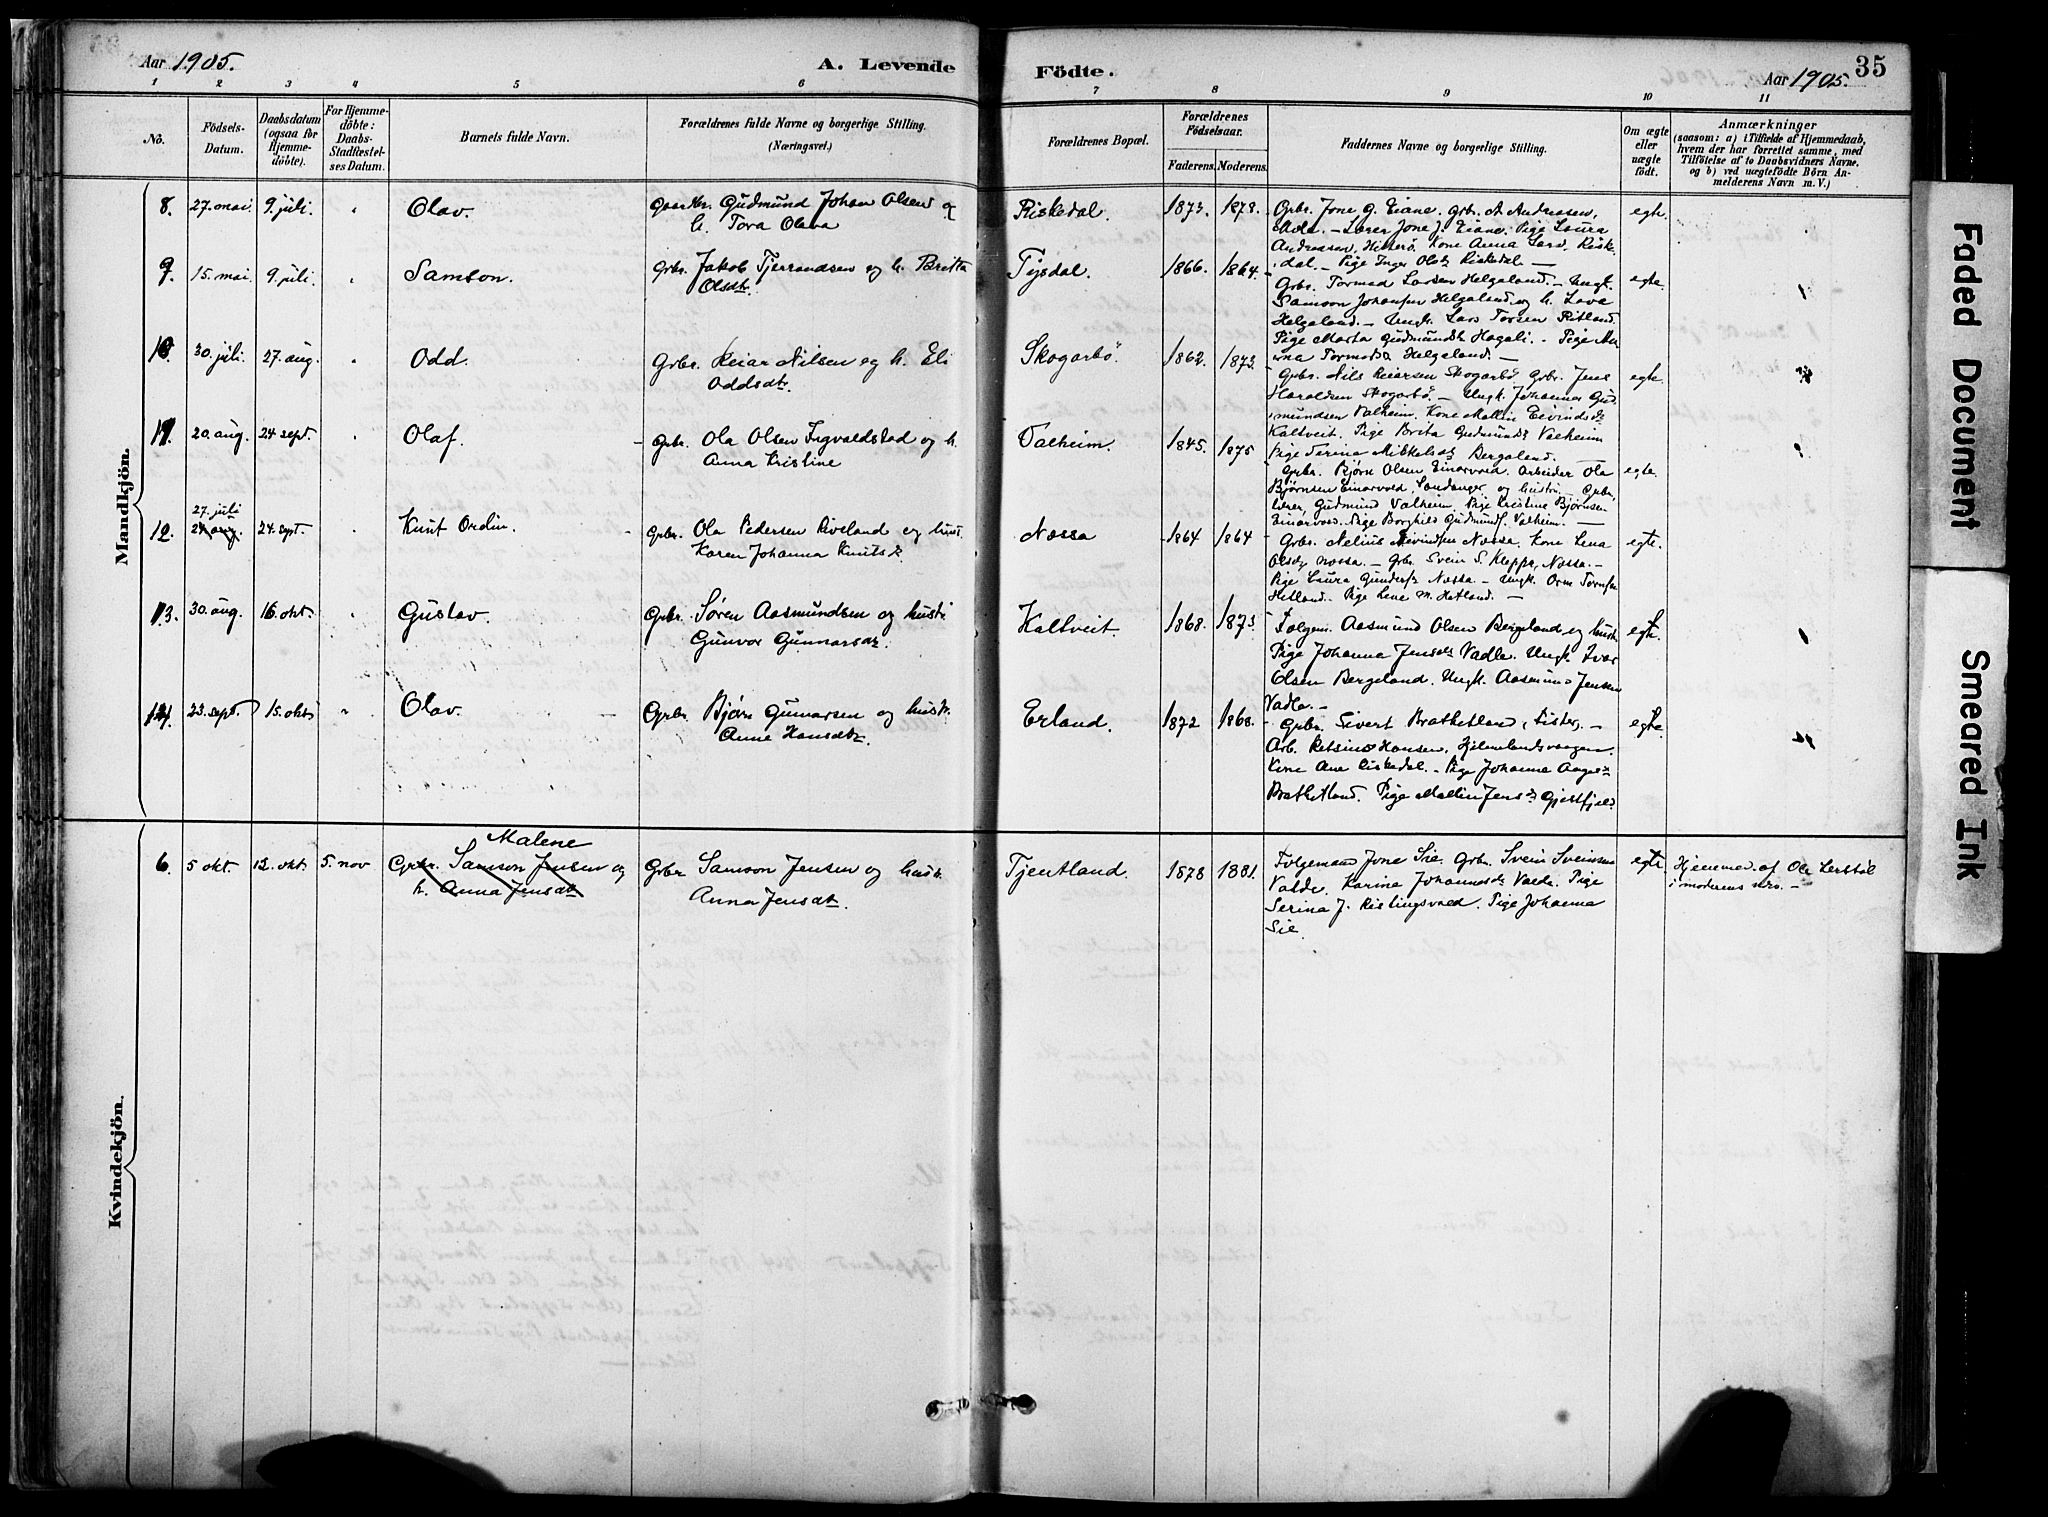 Aar 1905.
A. Levende
Födte.
Aar 1905.
35
1 2 3 4 5 6 7 8 9 10 11
No.
Födsels-
Datum.
Daabsdatum
(ogsaa for
Hjemme-
döbte).
For Hjemme-
döbte:
Daabs-
Stadfæstel-
ses Datum.
Barnets fulde Navn.
Forældrenes fulde Navne og borgerlige Stilling.
(Næringsvei.)
Forældrenes Bopæl.
Forældrenes
Födselsaar.
Faderens. Moderens.
Faddernes Navne og borgerlige Stilling.
Om ægte
eller
uægte
födt.
Anmærkninger
(saasom: a) i Tilfælde af Hjemmedaab,
hvem der har forrettet samme, med
Tilföielse af to Daabsvidners Navne,
og b) ved uægtefödte Börn An-
melderens Navn m. V.)
Mandkjön.
8. 27. mai. 9. juli. Olav.
Gudmund Johan Olsen og
h. Tora Olava
Riskedal. 1873. 1878.
Grbr. Jone G. Eiane. Grbr. A. Andreasen,
Lærer Jone J. Eiane. Pige Laura
Andreasen, Hitterö. Kone Anna Lard. Riske-
dal. – Pige Inger Olsdr Riskedal. –
egte.
9. 15. mai. 9. juli. Samson.
Grbr. Jakob Tjerrandsen og h. Britta
Olsdtr.
Tysdal. 1866. 1864.
Grbr. Tormod Larsen Helgaland. – Ungk.
Samson Johansen Helgaland og h. Lava
Helgaland. – Ungk. Lars Torsen Ritland.
Pige Marta Gudmundsdr Hagali. – Pige An-
na Tormodsd Helgaland. –
egte.
10. 30. juli. 27. aug. Odd.
Grbr. Reiar Nilsen og h. Eli
Oddsdtr.
Skogarbö. 1862. 1873.
Grbr. Nils Reiarsen Skogarbö. Grbr. Jens
Haraldsen Skogarbö. – Ungk. Johannes Gud-
mundsen Valheim. Kone Mallin Eivindsdr
Kaltveit. Pige Brita Gudmundsd Valheim
Pige Serina Mikkelsdr Bergeland.
egte.
11. 20. aug. 24 sept. Olaf.
Grbr. Ola Olsen Ingvaldstad og h.
Anna Kristine
Valheim. 1845. 1875
Grbr. Bjørn Olsen Einarvold. Arbeider Ola
Bjørnsen Einarvold, Sandanger og hustru. – Grbr.
Lærer, Gudmund Valheim. Pige Kristine Bjørnsen
Einarvold. Pige Borghild Gudmundsd. Valheim. –
egte.
12. 27. juli
24 aug. 24. sept. Knut Ordin.
Grbr. Ola Pedersen Riveland og hust.
Karen Johanna Knutsdr
Nessa 1864 1864
Grbr. Nelius Eivindsen Nessa. Kone Lena
Olsdtr Nessa. – Grbr. Svein S. Kleppa, Nessa. –
Pige Laura Gundersdr Nessa – Ungk. Orm Tormsen
Hetland. Pige Lene M. Hetland. –
egte.
13. 30. aug. 16. okt. Gustav.
Grbr. Søren Aasmundsen og hustr.
Gunvor Gunnarsdtr.
Kaltveit. 1868. 1873.
Folgem. Aasmund Olsen Bergeland og hust.
Pige Johanna Jensdr Vadla. Ungk. Ivar
Olsen Bergeland. Ungk. Aasmund Jensen
Vadla. –
egte.
14. 23. sept. 15. okt. Olav.
Grbr. Bjørn Gunnarsen og hustr.
Anne Hansdtr.
Erland. 1872 1868.
Grbr. Sivert Brathetland, Fister. –
Arb. Retsius Hansen, Hjelmelandsvaagen.
Kone Ane Riskedal. – Pige Johanne Aagesdr
Brathetland. Pige Mallin Jensdr Gjestfjeld
egte.
Kvindekjön.
6. 5 okt. 12. okt. 5. nov
Malene
Grbr. Samson Jensen og
h. Anna Jensdtr
Grbr Samson Jensen og hustr.
Anna Jensdtr.
Tjentland. 1878 1881.
Folgemand Jone Sie. Grbr. Svein Sveinsen
Valde. Karina Johannesdr Valde. Pige
Serina J. Ristingsvold. Pige Johanna
Sie.
egte.
Hjemmed. af Ole
i moderens nærv. –
Faded Document
Smeared Ink